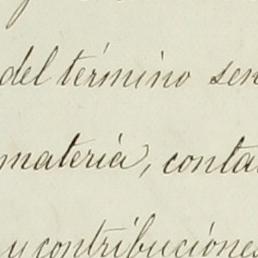 del término sen
materia, conta
y contribuciónes